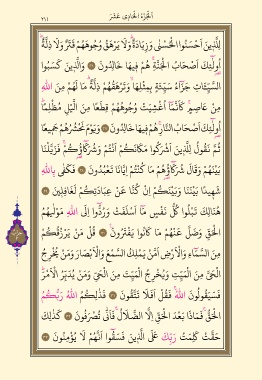 اَلْجُزْءُ الْحَادِى عَشَرَ
٢١١
لِلَّذِينَ اَحْسَنُوا الْحُسْنٰى وَزِيَادَةٌ وَلَا يَرْهَقُ وُجُوهَهُمْ قَتَرٌ وَلَا ذِلَّةٌ
اُولٰٓئِكَ اَصْحَابُ الْجَنَّةِ هُمْ فِيهَا خَالِدُونَ وَالَّذِينَ كَسَبُوا
السَّيِّـَٔاتِ جَزَٓاءُ سَيِّئَةٍ بِمِثْلِهَا وَتَرْهَقُهُمْ ذِلَّةٌ مَا لَهُمْ مِنَ اللّٰهِ
مِنْ عَاصِمٍ كَاَنَّمَٓا اُغْشِيَتْ وُجُوهُهُمْ قِطَعًا مِنَ الَّيْلِ مُظْلِمًا
اُولٰٓئِكَ اَصْحَابُ النَّارِ هُمْ فِيهَا خَالِدُونَ وَيَوْمَ نَحْشُرُهُمْ جَمِيعًا
ثُمَّ نَقُولُ لِلَّذِينَ اَشْرَكُوا مَكَانَكُمْ اَنْتُمْ وَشُرَكَٓاؤُ۬كُمْ فَزَيَّلْنَا
بَيْنَهُمْ وَقَالَ شُرَكَٓاؤُ۬هُمْ مَا كُنْتُمْ اِيَّانَا تَعْبُدُونَ فَكَفٰى بِاللّٰهِ
شَهِيدًا بَيْنَنَا وَبَيْنَكُمْ اِنْ كُنَّا عَنْ عِبَادَتِكُمْ لَغَافِلِينَ
هُنَالِكَ تَبْلُوا كُلُّ نَفْسٍ مَٓا اَسْلَفَتْ وَرُدُّٓوا اِلَى اللّٰهِ مَوْلٰيهُمُ
الْحَقِّ وَضَلَّ عَنْهُمْ مَا كَانُوا يَفْتَرُونَ قُلْ مَنْ يَرْزُقُكُمْ
مِنَ السَّمَٓاءِ وَالْاَرْضِ اَمَّنْ يَمْلِكُ السَّمْعَ وَالْاَبْصَارَ وَمَنْ يُخْرِجُ
الْحَيَّ مِنَ الْمَيِّتِ وَيُخْرِجُ الْمَيِّتَ مِنَ الْحَيِّ وَمَنْ يُدَبِّرُ الْاَمْرَ
فَسَيَقُولُونَ اللّٰهُ فَقُلْ اَفَلَا تَتَّقُونَ فَذٰلِكُمُ اللّٰهُ رَبُّكُمُ
الْحَقُّ فَمَاذَا بَعْدَ الْحَقِّ اِلَّا الضَّلَالُ فَاَنّٰى تُصْرَفُونَ كَذٰلِكَ
حَقَّتْ كَلِمَتُ رَبِّكَ عَلَى الَّذِينَ فَسَقُٓوا اَنَّهُمْ لَا يُؤْمِنُونَ